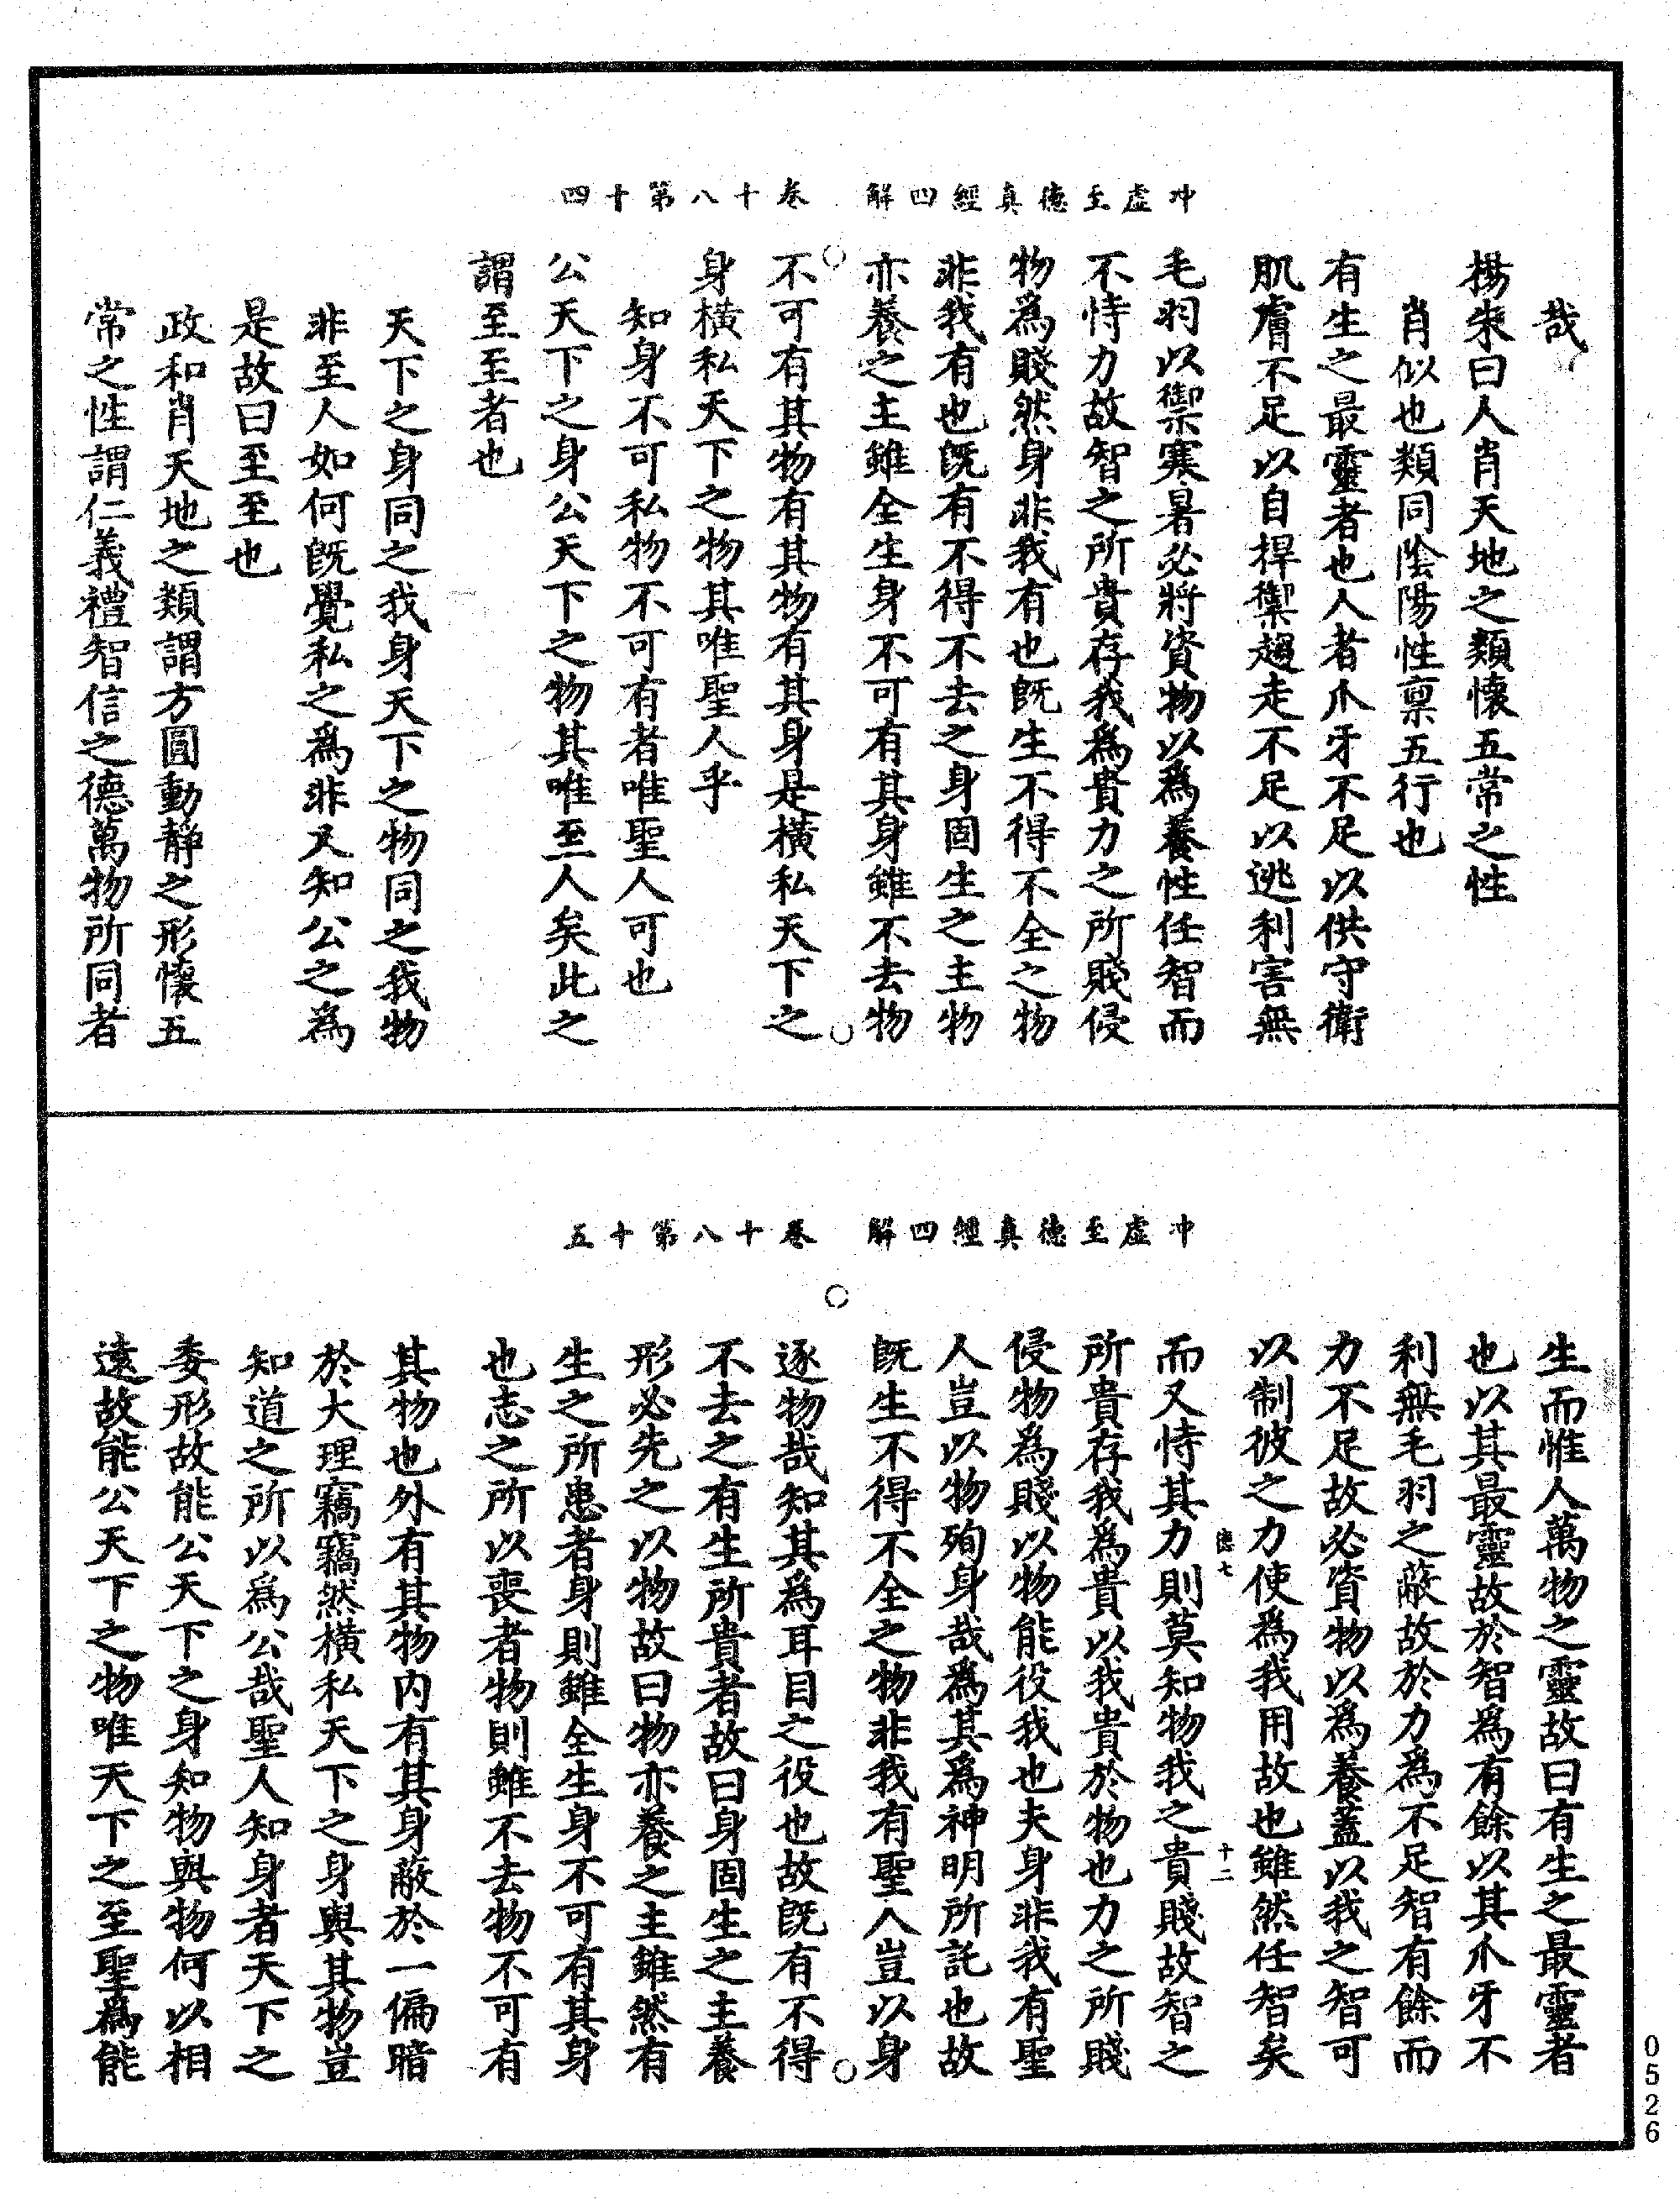 冲虛至德真經四解　卷十八第十四
哉
楊朱曰人肖天地之類懷五常之性
肖似也類同陰陽性稟五行也
有生之最靈者也人者爪牙不足以供守衛
肌膚不足以自捍禦趨走不足以逃利害無
毛羽以禦寒暑必將資物以為養性任智而
不恃力故智之所貴存我為貴力之所賤侵
物為賤然身非我有也既生不得不全之物
非我有也既有不得不去之身固生之主物
亦養之主雖全生身不可有其身雖不去物
不可有其物有其物有其身是橫私天下之
身橫私天下之物其唯聖人乎
知身不可私物不可有者唯聖人可也
公天下之身公天下之物其唯至人矣此之
謂至至者也
天下之身同之我身天下之物同之我物
非至人如何既覺私之為非又知公之為
是故曰至至也
政和肖天地之類謂方圓動靜之形懷五
常之性謂仁義禮智信之德萬物所同者
冲虛至德真經四解　卷十八第十五
生而惟人萬物之靈故曰有生之最靈者
也以其最靈故於智為有餘以其爪牙不
利無毛羽之蔽故於力為不足智有餘而
力不足故必資物以為養蓋以我之智可
以制彼之力使為我用故也雖然任智矣
德七　十二
而又恃其力則莫知物我之貴賤故智之
所貴存我為貴以我貴於物也力之所賤
侵物為賤以物能役我也夫身非我有聖
人豈以物殉身哉為其為神明所託也故
既生不得不全之物非我有聖人豈以身
逐物哉知其為耳目之役也故既有不得
不去之有生所貴者故曰身固生之主養
形必先之以物故曰物亦養之主雖然有
生之所患者身則雖全生身不可有其身
也志之所以喪者物則雖不去物不可有
其物也外有其物內有其身蔽於一偏暗
於大理竊竊然橫私天下之身與其物豈
知道之所以為公哉聖人知身者天下之
委形故能公天下之身知物與物何以相
遠故能公天下之物唯天下之至聖為能
0526